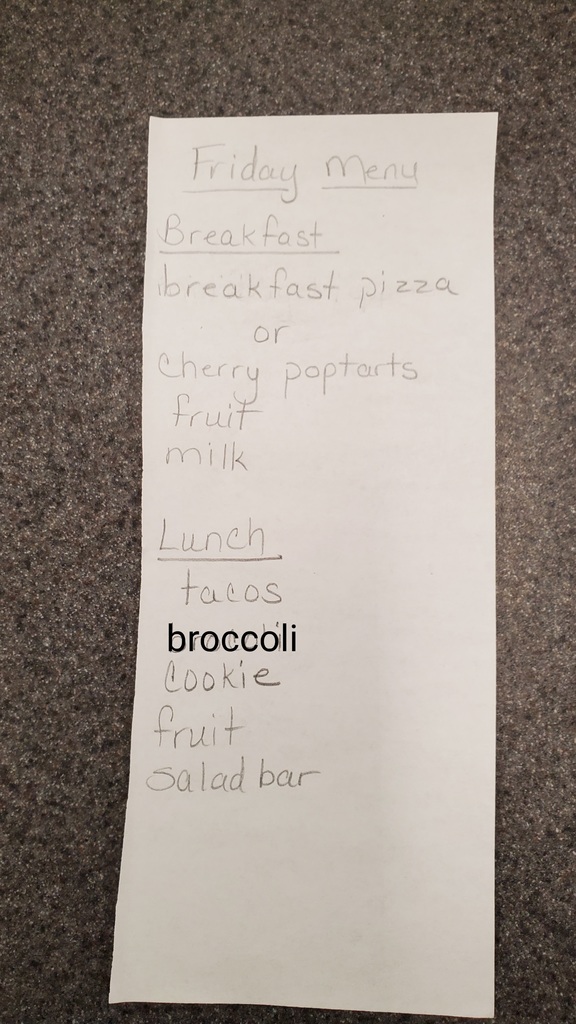 Friday Menu
Breakfast
breakfast pizza
or
Cherry poptarts
fruit
milk
Lunch
tacos
broccoli
Cookie
fruit
Salad bar